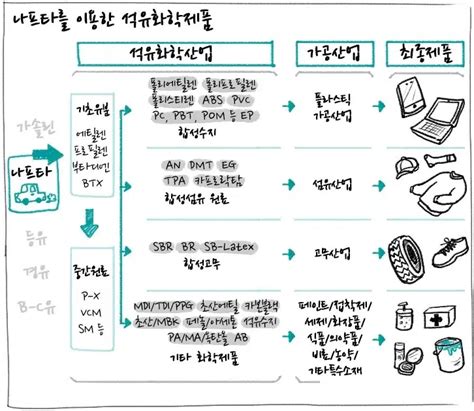 나프타를 이용한 석유화학제품
석유화학산업
가공산업
최종제품
가솔린
나프타
등유
경유
B-C유
기초유분
에틸렌
프로필렌
부타디엔
BTX
중간원료
P-X
VCM
SM 등
폴리에틸렌 폴리프로필렌
폴리스티렌 ABS PVC
PC, PBT, POM 등 EP
합성수지
플라스틱
가공산업
AN DMT EG
TPA 카프로락탐
합성섬유 원료
섬유산업
SBR BR SB-Latex
합성고무
고무산업
MDI/TDI/PPG 초산에틸 카본블랙
초산/MBK 페놀/아세톤 석유수지
PA/MA/옥탄올 AB
기타 화학제품
페인트/접착제/
세제/화장품/
식품/의약품/
비료/농약/
기타특수소재